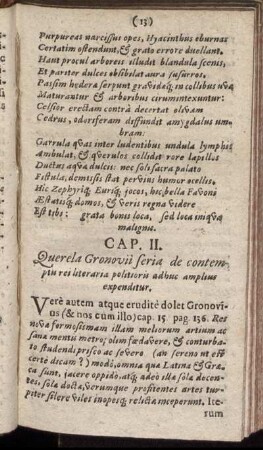 (15)
Purpureas narcissus opes, Hyacinthus eburnas
Certatim ostendunt, & grato errore duellant.
Haut procul arboreis illudit blandula scenis,
Et pariter dulces obsibilat aura susurros.
Passim hedera serpunt gravidæq; in collibus uvæ
Maturantur & arboribus circumtexuntur:
Celsior erectam contrà decertat olivam
Cedrus, odoriferam diffundit amygdalus um-
bram:
Garrula quas inter ludentibus undula lymphis
Ambulat, & querulos collidit rore lapillos
Ductus aqua dulces: nec soli sacra palato
Fistula; demissis stat pervius humor ocellis.
Hic Zephyriq; Euriq; joci, hic bella Favoni
Æstatisq; domos, & veris regna videre
Est tibi: grata bonis loca, sed loca iniqua
malignis.
CAP. II.
Querela Gronovii seria de contem-
ptu rei literaria politioris adhuc amplius
expenditur.
Verè autem atque eruditè dolet Gronovi-
us (& nos cum illo) cap. 15. pag. 136. Res
nova formosissimam illam meliorum artium ac
sana mentis metro; olim fœdavere, & conturba-
to studendi prisco ac severo (an sereno ut eff
certè dicam?) modò, omnia qua Latina & Græ-
ca sunt, jacere oppidò, atq; adeò illa sola docen-
tes, sola docta, verumque profitentes artes tur-
piter silere viles inopesq; relicta inceperunt. Ite-
rum